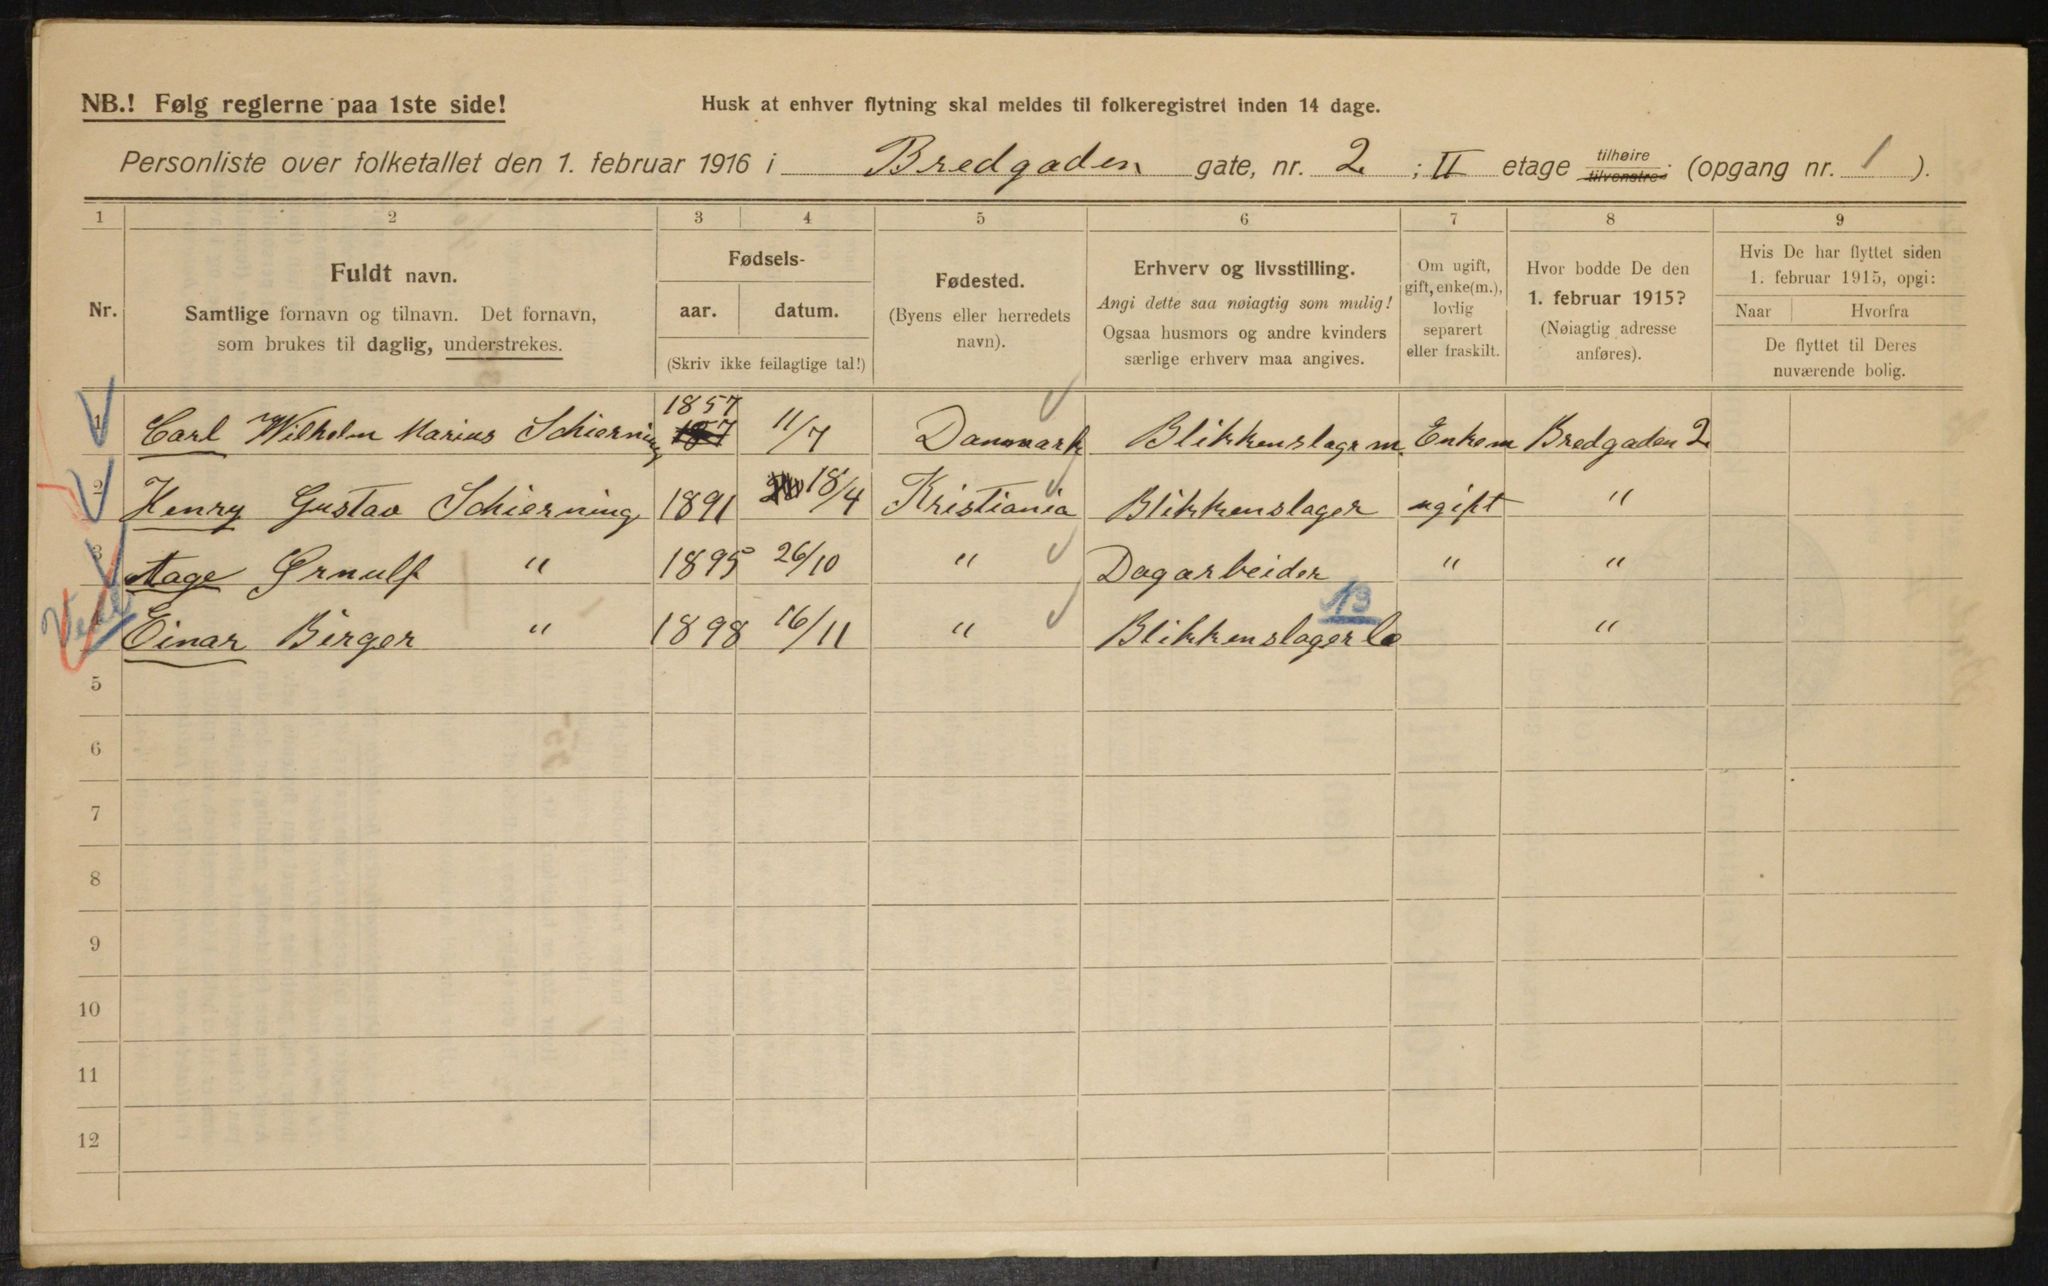 NB.! Følg reglerne paa 1ste side!
Husk at enhver flytning skal meldes til folkeregistret inden 14 dage.
Personliste over folketallet den 1. februar 1916 i Bredgaden gate, nr. 2 ; II etage tilhøire tilvenstre. (opgang nr. 1 ).
1 2 3 4 5 6 7 8 9
Nr.
Fuldt navn.
Samtlige fornavn og tilnavn. Det fornavn,
som brukes til daglig, understrekes.
Fødsels-
aar. datum.
(Skriv ikke feilagtige tal!)
Fødested.
(Byens eller herredets
navn).
Erhverv og livsstilling.
Angi dette saa nøiagtig som mulig!
Ogsaa husmors og andre kvinders
særlige erhverv maa angives.
Om ugift,
gift, enke(m.),
lovlig
separert
eller fraskilt.
Hvor bodde De den
1. februar 1915?
(Nøiagtig adresse
anføres).
Hvis De har flyttet siden
1. februar 1915, opgi:
Naar Hvorfra
De flyttet til Deres
nuværende bolig.
1 Carl Wilhelm Marius Schierning 1857 11/7 Danmark Blikkenslagerm. Enkem Bredgaden 2
2 Henry Gustav Schierning 1891 18/4 Kristiania Blikkenslager ugift "
3 Aage Ørnulf " 1895 26/10 " Dagarbeider " "
13
4 Einar Birger " 1898 16/11 " Blikkenslagerle "
5
6
7
8
9
10
11
12